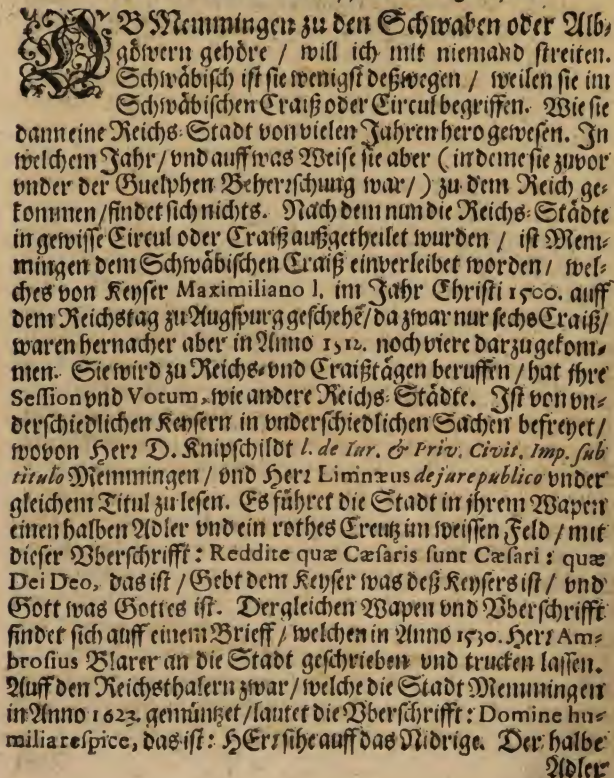 OB Memmingen zu den Schwaben oder Alb-
göwern gehöre / will ich mit niemand streiten.
Schwäbisch ist sie wenigst deßwegen / weilen sie im
Schwäbischen Craiß oder Circul begriffen. Wie sie
dann eine Reichs-Stadt von vielen Jahren hero gewesen. In
welchem Jahr / vnd auff was Weise sie aber (in deme sie zuvor
vnder der Guelphen Beherrschung war /) zu dem Reich ge-
kommen / findet sich nichts. Nach dem nun die Reichs-Städte
in gewisse Circul oder Craiß außgetheilet wurden / ist Mem-
mingen dem Schwäbischen Craiß einverleibet worden / wel-
ches von Keyser Maximiliano I. im Jahr Christi 1500. auff
dem Reichstag zu Augspurg geschehẽ / da zwar nur sechs Craiß /
waren hernacher aber in Anno 1512. noch viere darzu gekom-
men. Sie wird zu Reichs- vnd Craißtägen beruffen / hat jhre
Session vnd Votum, wie andere Reichs-Städte. Ist von vn-
derschiedlichen Keysern in vnderschiedlichen Sachen befreyet /
wovon Herr D. Knipschildt l. de Iur. & Priv. Civit. Imp. sub
titulo Memmingen / vnd Herr Limnæus de jure publico vnder
gleichem Titul zu lesen. Es führet die Stadt in jhrem Wapen
einen halben Adler vnd ein rothes Creutz im weissen Feld / mit
dieser Vberschrifft: Reddite quæ Cæsaris sunt Cæsari: quæ
Dei Deo, das ist / Gebt dem Keyser was deß Keysers ist / vnd
Gott was Gottes ist. Dergleichen Wapen vnd Vberschrifft
findet sich auff einem Brieff / welchen in Anno 1530. Herr Am-
brosius Blarer an die Stadt geschrieben vnd trucken lassen.
Auff den Reichsthalern zwar / welche die Stadt Memmingen
in Anno 1623. gemüntzet / lautet die Vberschrifft: Domine hu-
milia respice, das ist: HErr sihe auff das Nidrige. Der halbe
Adler